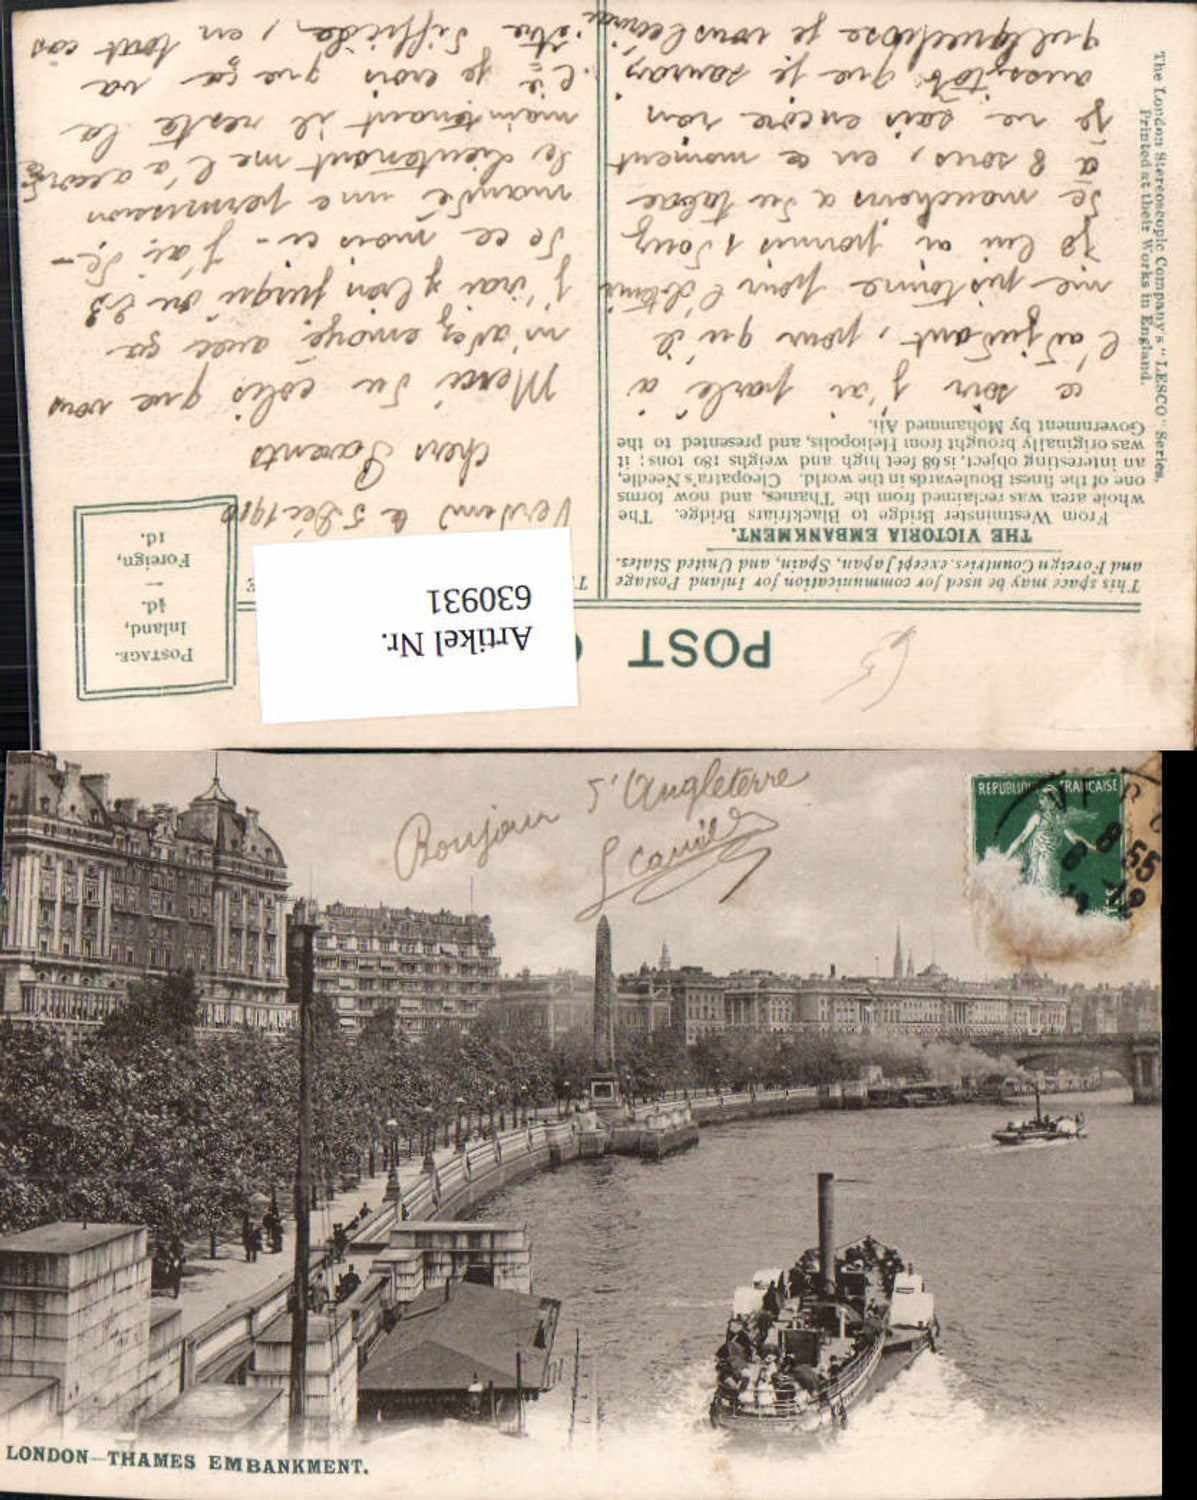 POST
POSTAGE.
Inland,
½d.
—
Foreign,
1d.
Artikel Nr.
630931
This space may be used for communication for Inland Postage
and Foreign Countries, except Japan, Spain, and United States.
THE VICTORIA EMBANKMENT.
From Westminster Bridge to Blackfriars Bridge. The
whole area was reclaimed from the Thames, and now forms
one of the finest Boulevards in the world. Cleopatra's Needle,
an interesting object, is 68 feet high and weighs 180 tons; it
was originally brought from Heliopolis, and presented to the
Government by Mohammed Ali.
ce soir j'ai parlé à
l'adjudant, pour qu'il
me pistonne pour l'obtenir
je lui ai promis 1 Souz
de manchons a du tabac
à 8 sous, en ce moment
je ne sais encore rien
aussitôt que je saurai
quelquechose je vous écrirai
le 5 Déc 1912
Chers Parents
Merci du colis que vous
m'avez envoyé avec ça
j'irai bien jusqu'au 23
de ce mois-ci - j'ai de-
mandé une permission
le lieutenant me l'a accordé
maintenant il reste la
Cie je crois que ça va
être difficile, en tout cas
The London Stereoscopic Company's "LESCO" Series.
Printed at their Works in England.
Bonjour d'Angleterre
REPUBLIQUE FRANÇAISE
8 55
LONDON—THAMES EMBANKMENT.